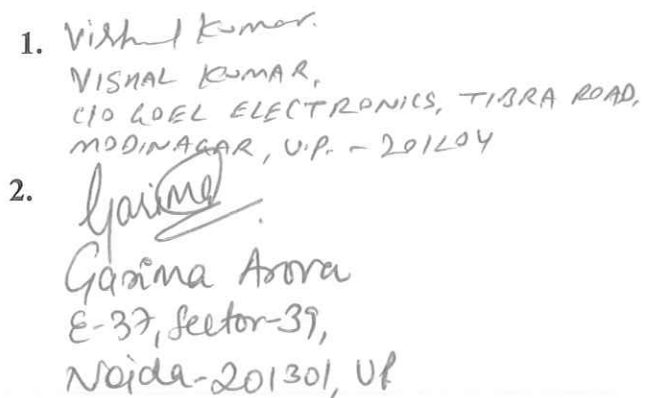 1. Vishal Kumar.
VISHAL KUMAR,
C/O GOEL ELECTRONICS, TIBRA ROAD,
MODINAGAR, U.P. - 201204
2. Garima
Garima Arora
E-37, Sector-39,
Noida-201301, UP